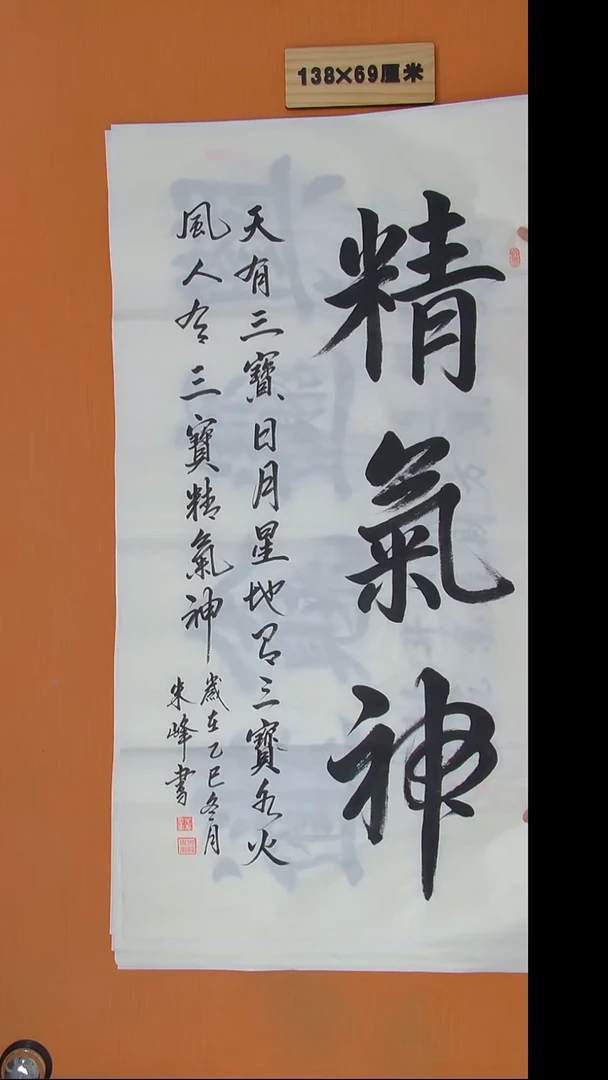 138×69厘米
精氣神
天有三寶日月星地有三寶水火
風人有三寶精氣神
歲在乙巳冬月
朱峰書